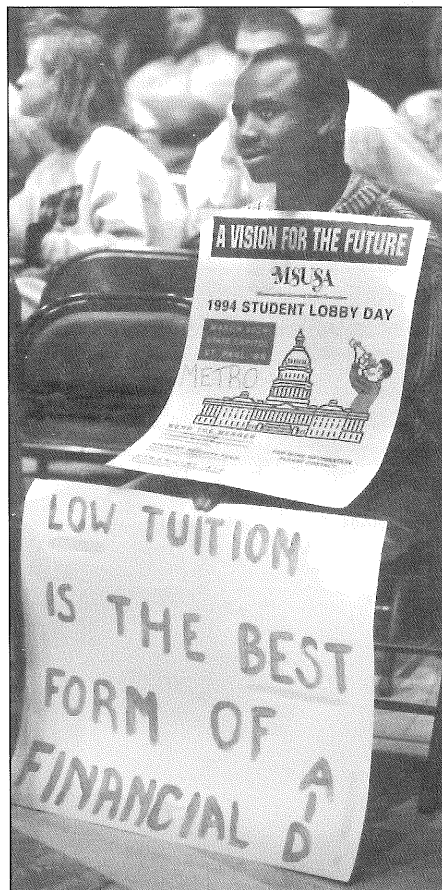 A VISION FOR THE FUTURE
MSUSA
1994 STUDENT LOBBY DAY
METRO
LOW TUITION
IS THE BEST
FORM OF
FINANCIAL AID